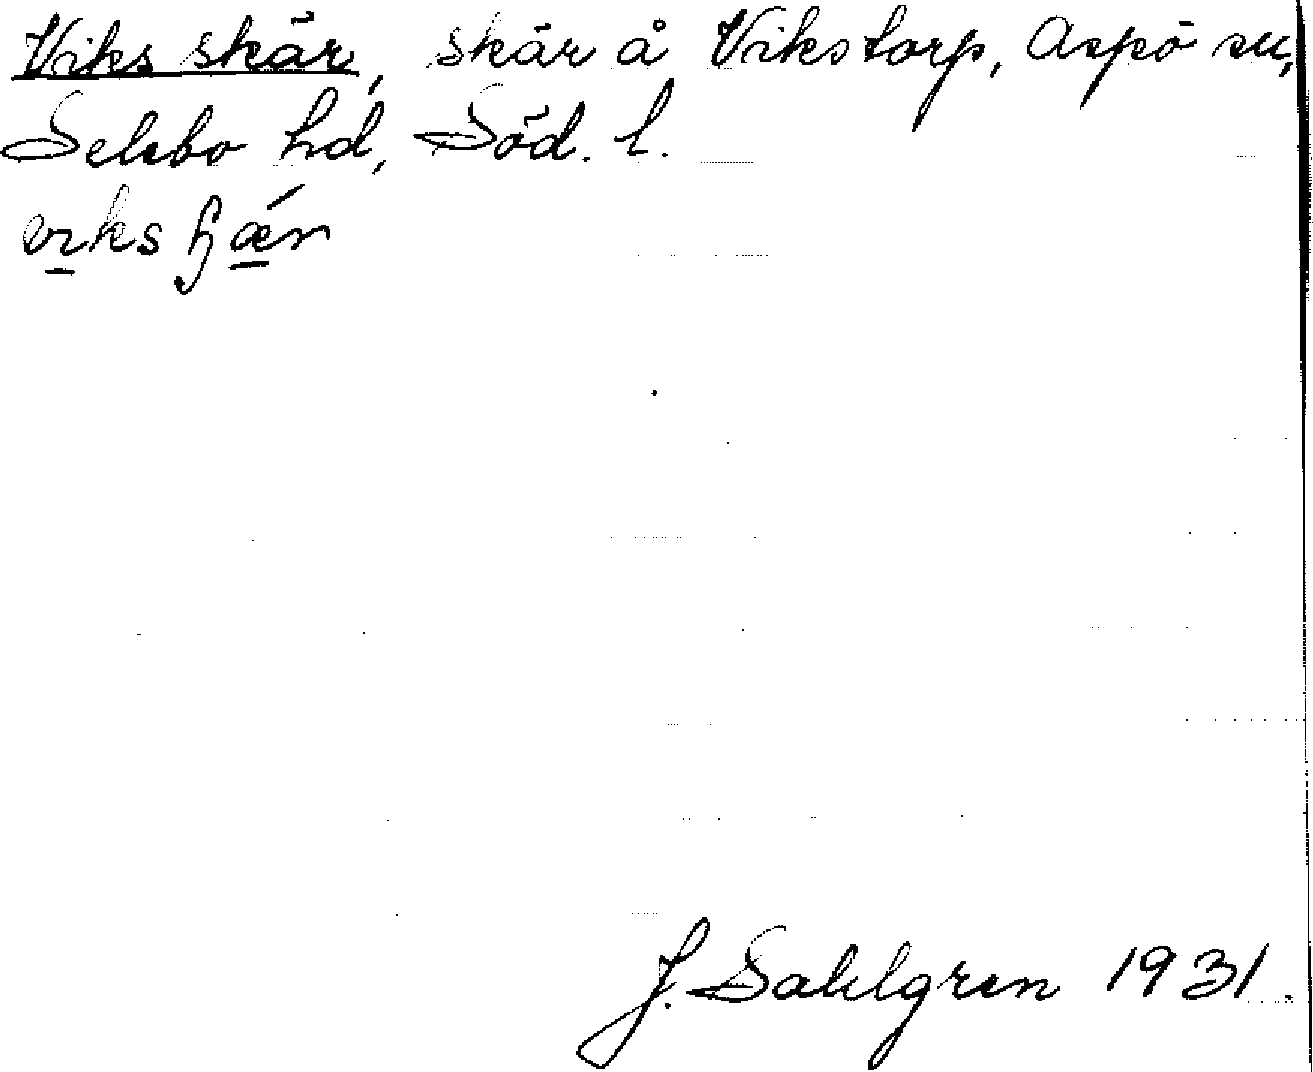 Viks skär, skär å Vikstorp, Aspö sn,
Selebo hd, Söd. l.
vıks ꞕǽr
J. Sahlgren 1931.